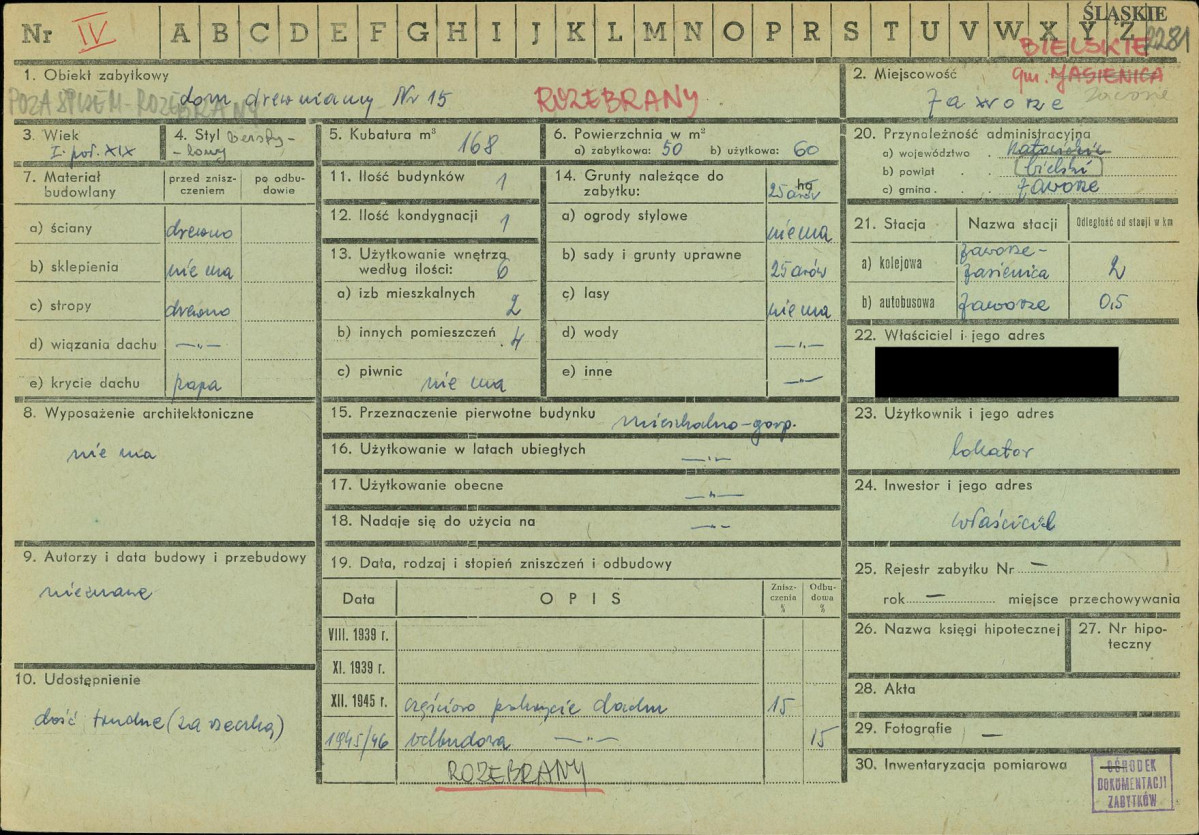 Nr IV A B C D E F G H I J K L M N O P R S T U V W X Y Z ŚLĄSKIE 2281
BIELSKIE
1. Obiekt zabytkowy
POZA SPISEM - ROZEBRANY
dom drewniany Nr 15 ROZEBRANY
2. Miejscowość gm. JASIENICA
Jaworze
Jaworze
3. Wiek
I. poł. XIX
4. Styl
5. Kubatura m³ 168
6. Powierzchnia w m²
a) zabytkowa: 50 b) użytkowa: 60
7. Materiał budowlany
przed zniszczeniem
po odbudowie
a) ściany drewno
b) sklepienia nie ma
c) stropy drewno
d) wiązania dachu —„—
e) krycie dachu papa
8. Wyposażenie architektoniczne
nie ma
9. Autorzy i data budowy i przebudowy
nieznane
10. Udostępnienie
dość trudne (za rzeczką)
11. Ilość budynków 1
12. Ilość kondygnacji 1
13. Użytkowanie wnętrza
według ilości: 6
a) izb mieszkalnych 2
b) innych pomieszczeń 4
c) piwnic nie ma
14. Grunty należące do
zabytku: ha
25 arów
a) ogrody stylowe nie ma
b) sady i grunty uprawne 25 arów
c) lasy nie ma
d) wody —„—
e) inne —„—
15. Przeznaczenie pierwotne budynku mieszkalno-gosp.
16. Użytkowanie w latach ubiegłych —„—
17. Użytkowanie obecne —„—
18. Nadaje się do użycia na —„—
19. Data, rodzaj i stopień zniszczeń i odbudowy
Data OPIS Zniszczenia % Odbudowa %
VIII. 1939 r.
XI. 1939 r.
XII. 1945 r. częściowo pokrycie dachu 15
1945/46 odbudowa —„— 15
ROZEBRANY
20. Przynależność administracyjna
a) województwo . katowickie
b) powiat . . bielski
c) gmina . . Jaworze
21. Stacja Nazwa stacji Odległość od stacji w km
a) kolejowa Jaworze-
Jasienica 2
b) autobusowa Jaworze 0,5
22. Właściciel i jego adres
23. Użytkownik i jego adres
lokator
24. Inwestor i jego adres
właściciel
25. Rejestr zabytku Nr —
rok — miejsce przechowywania
26. Nazwa księgi hipotecznej
27. Nr hipoteczny
28. Akta
29. Fotografie —
30. Inwentaryzacja pomiarowa —
OŚRODEK
DOKUMENTACJI
ZABYTKÓW